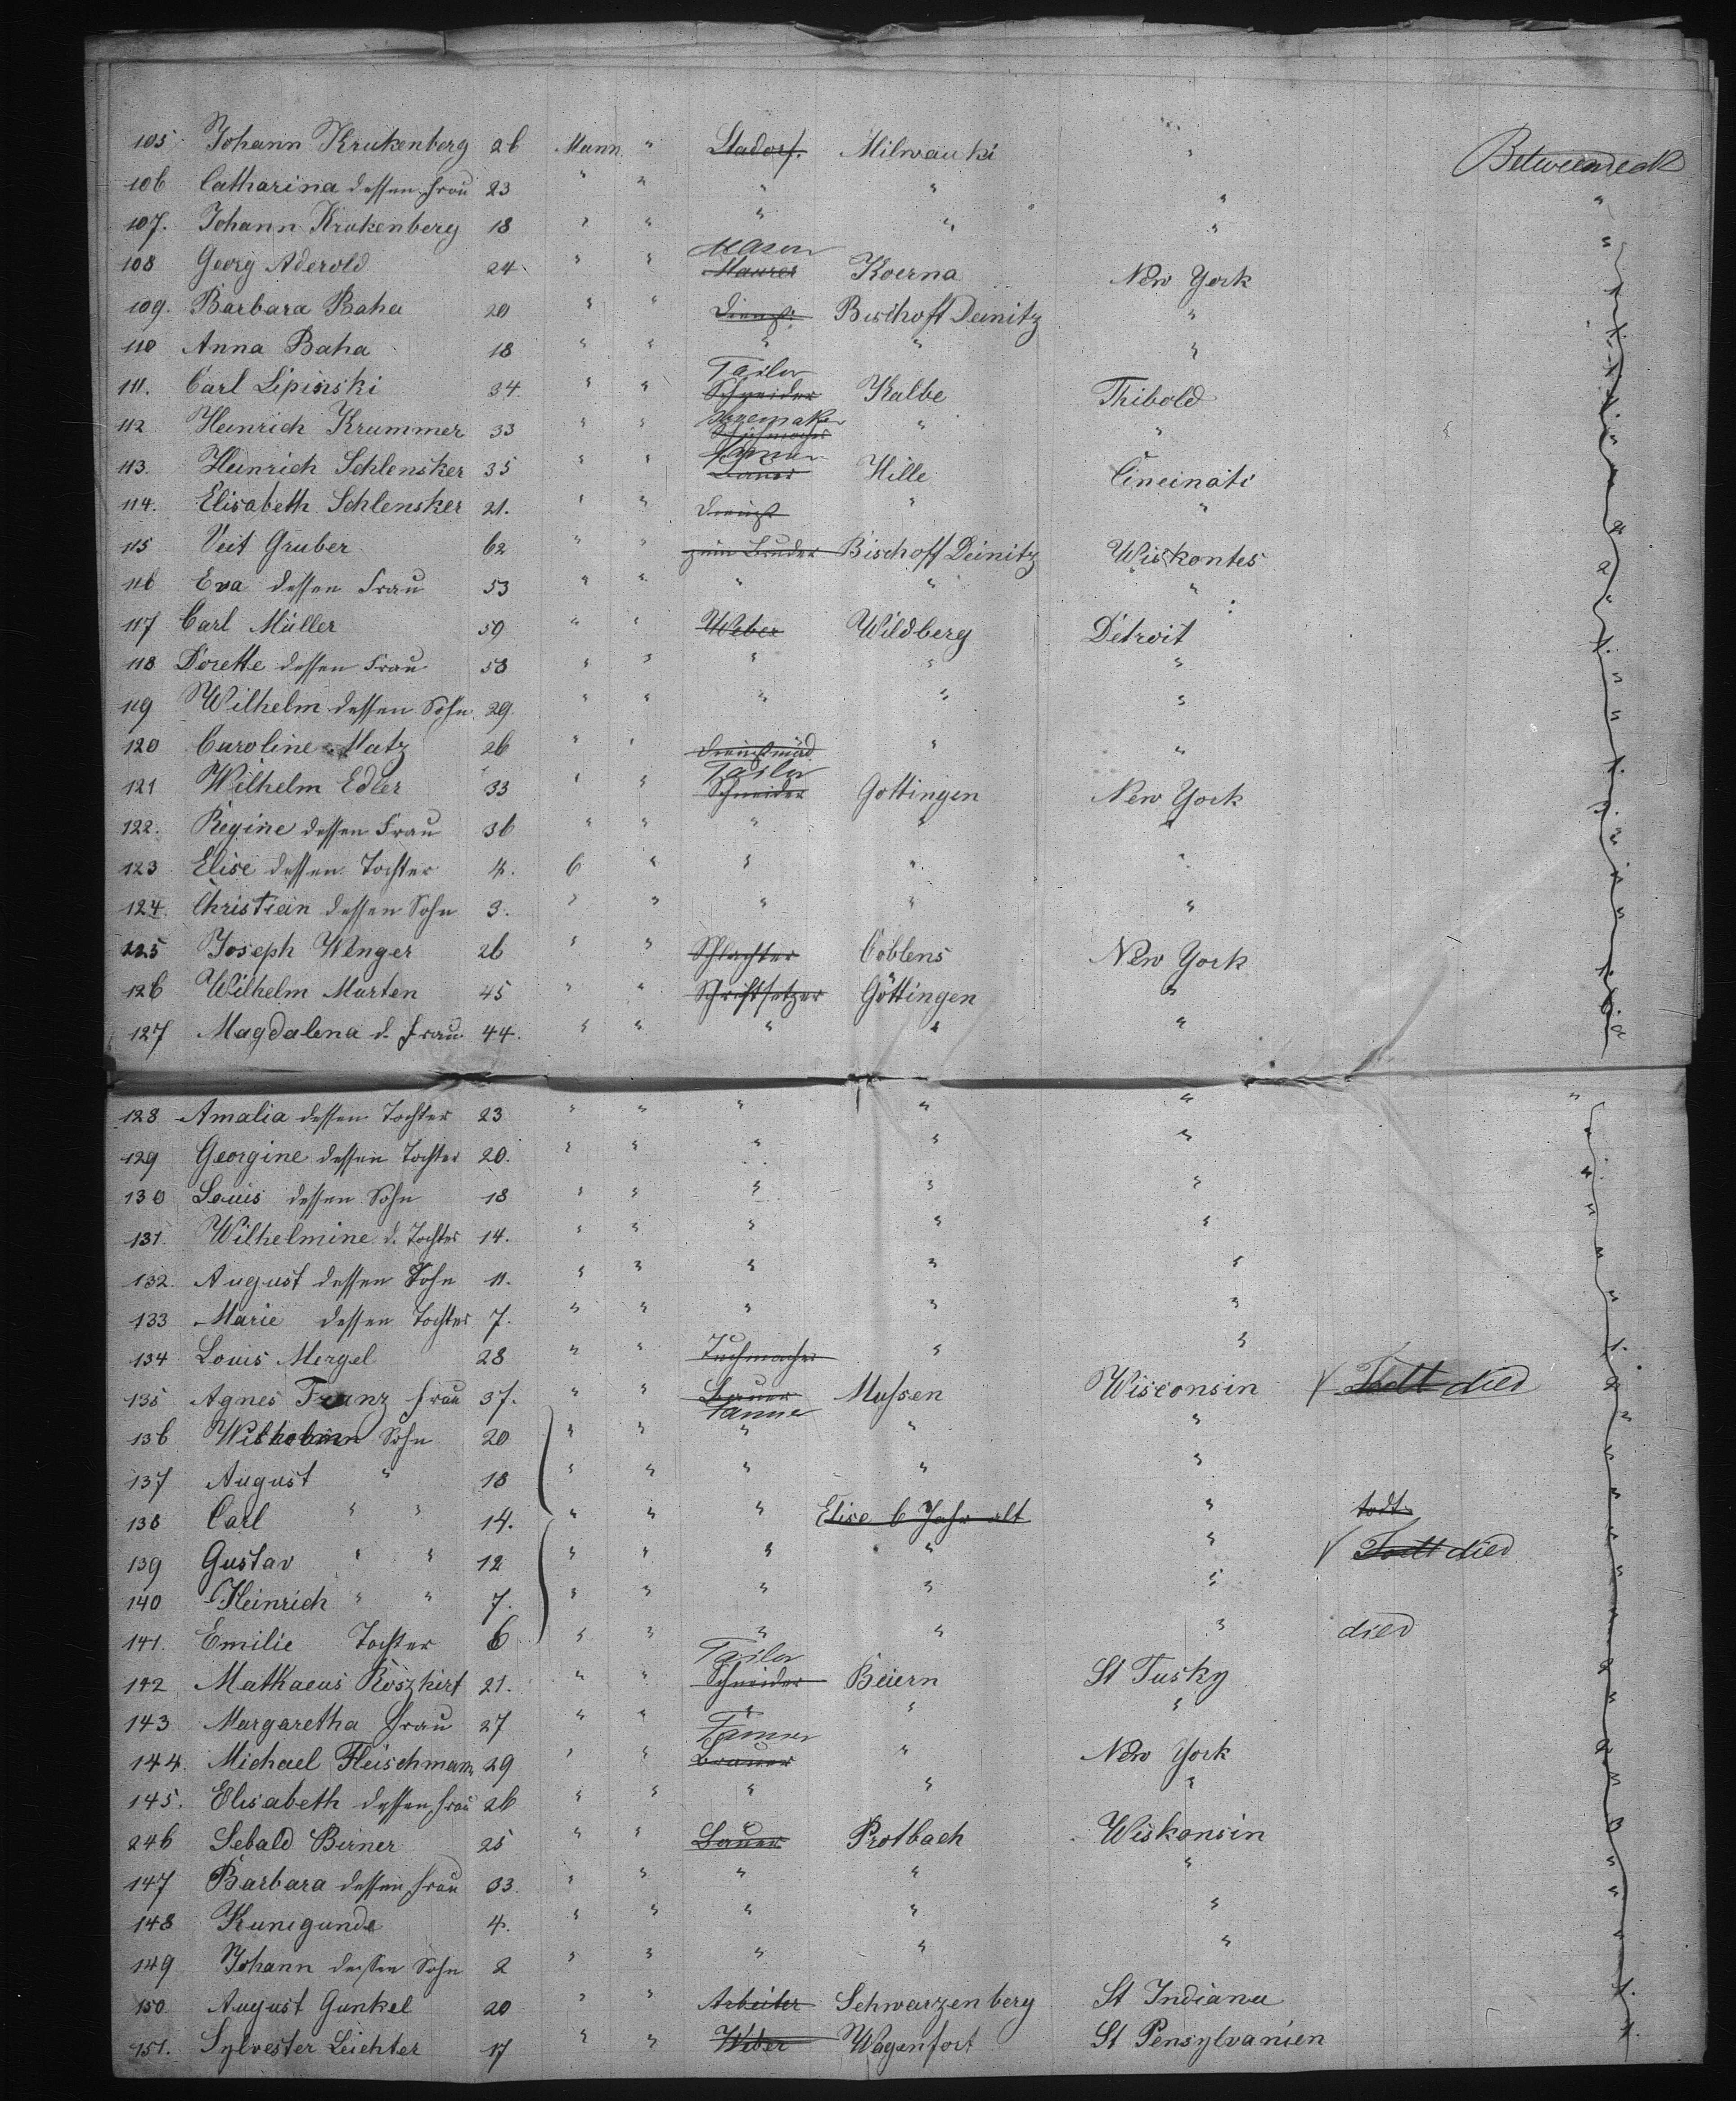 105 Johann Krukenberg 26 Mann " Stadorf. Milwauki " Betweendeck
106 Catharina dessen Frau 23 " " " " " "
107. Johann Krukenberg 18 " " " " " "
Mason
108 Georg Aderold 24 " " Maurer Koerna New York 1
109. Barbara Baha 20 " " Dienst. Bischoff Deinitz " 1
110 Anna Baha 18 " " " " " 1
Tailor
111. Carl Lipinski 34. " " Schneider Kalbe Thibold 1
Shoemaker
112 Heinrich Krummer 33 " " Schuhmacher " " 1
Farmer
113. Heinrich Schlensker 35 " " Bauer Hille Cincinati "
114. Elisabeth Schlensker 21. " " Dienst " "
115 Veit Gruber 62 " " zum Bruder Bischoff Deinitz Wiskontes 2
116 Eva dessen Frau 53 " " " " " "
117 Carl Müller 59 " " Weber Wildberg Detroit
118 Dorette dessen Frau 58 " " " " " "
119 Wilhelm dessen Sohn 29. " " " " " "
120 Caroline Matz 26 " " " " 1.
Tailor
121 Wilhelm Edler 33 " " Schneider Gottingen New York
122. Regine dessen Frau 36 " " " " " "
123 Elise dessen Tochter 4. 6 " " " " "
124. Christian dessen Sohn 3. " " " " " "
125 Joseph Wenger 26 " " Schlachter Coblens New York 1.
126 Wilhelm Marten 45 " " Schriftsetzer Göttingen "
127 Magdalena d. Frau 44. " " " " "
128 Amalia dessen Tochter 23 " " " " " "
129 Georgine dessen Tochter 20. " " " " " "
130 Louis dessen Sohn 18 " " " " " "
131. Wilhelmine d. Tochter 14. " " " " " "
132. August dessen Sohn 11. " " " " " "
133 Marie dessen Tochter 7. " " " " " "
134 Louis Mergel 28 " " Tuchmacher " " 1.
135 Agnes Franz Frau 37. " " Bauer Mussen Wisconsin √ Todt died
Farmer
136 Sohn 20 " " " " " "
137 August " 18 " " " " " "
138 Carl " " 14. " " " Elise 6 Jahr alt " todt "
139 Gustav " " 12 " " " " " √ Todt died "
140 Heinrich " " 7. " " " " " "
141. Emilie Tochter 6 " " " " " died "
Tailor
142 Mathaeus Roszhirt 21. " " Schneider Beiern St Tusky 2
143 Margaretha Frau 27 " " " " " "
Farmer
144. Michael Fleischmann 29 " " Brauer " New York 2
145. Elisabeth dessen Frau 26 " " " " " "
246 Sebald Birner 25 " " Bauer Protbach Wiskonsin
147 Barbara dessen Frau 33. " " " " " "
148 Kunigunde 4. " " " " " "
149 Johann dessen Sohn 2 " " " " " "
150 August Gunkel 20 " " Arbeiter Schwarzenberg St Indiana 1.
151. Sylvester Leichter 17 " " Weber Wagenfort St Pensylvanien 1.